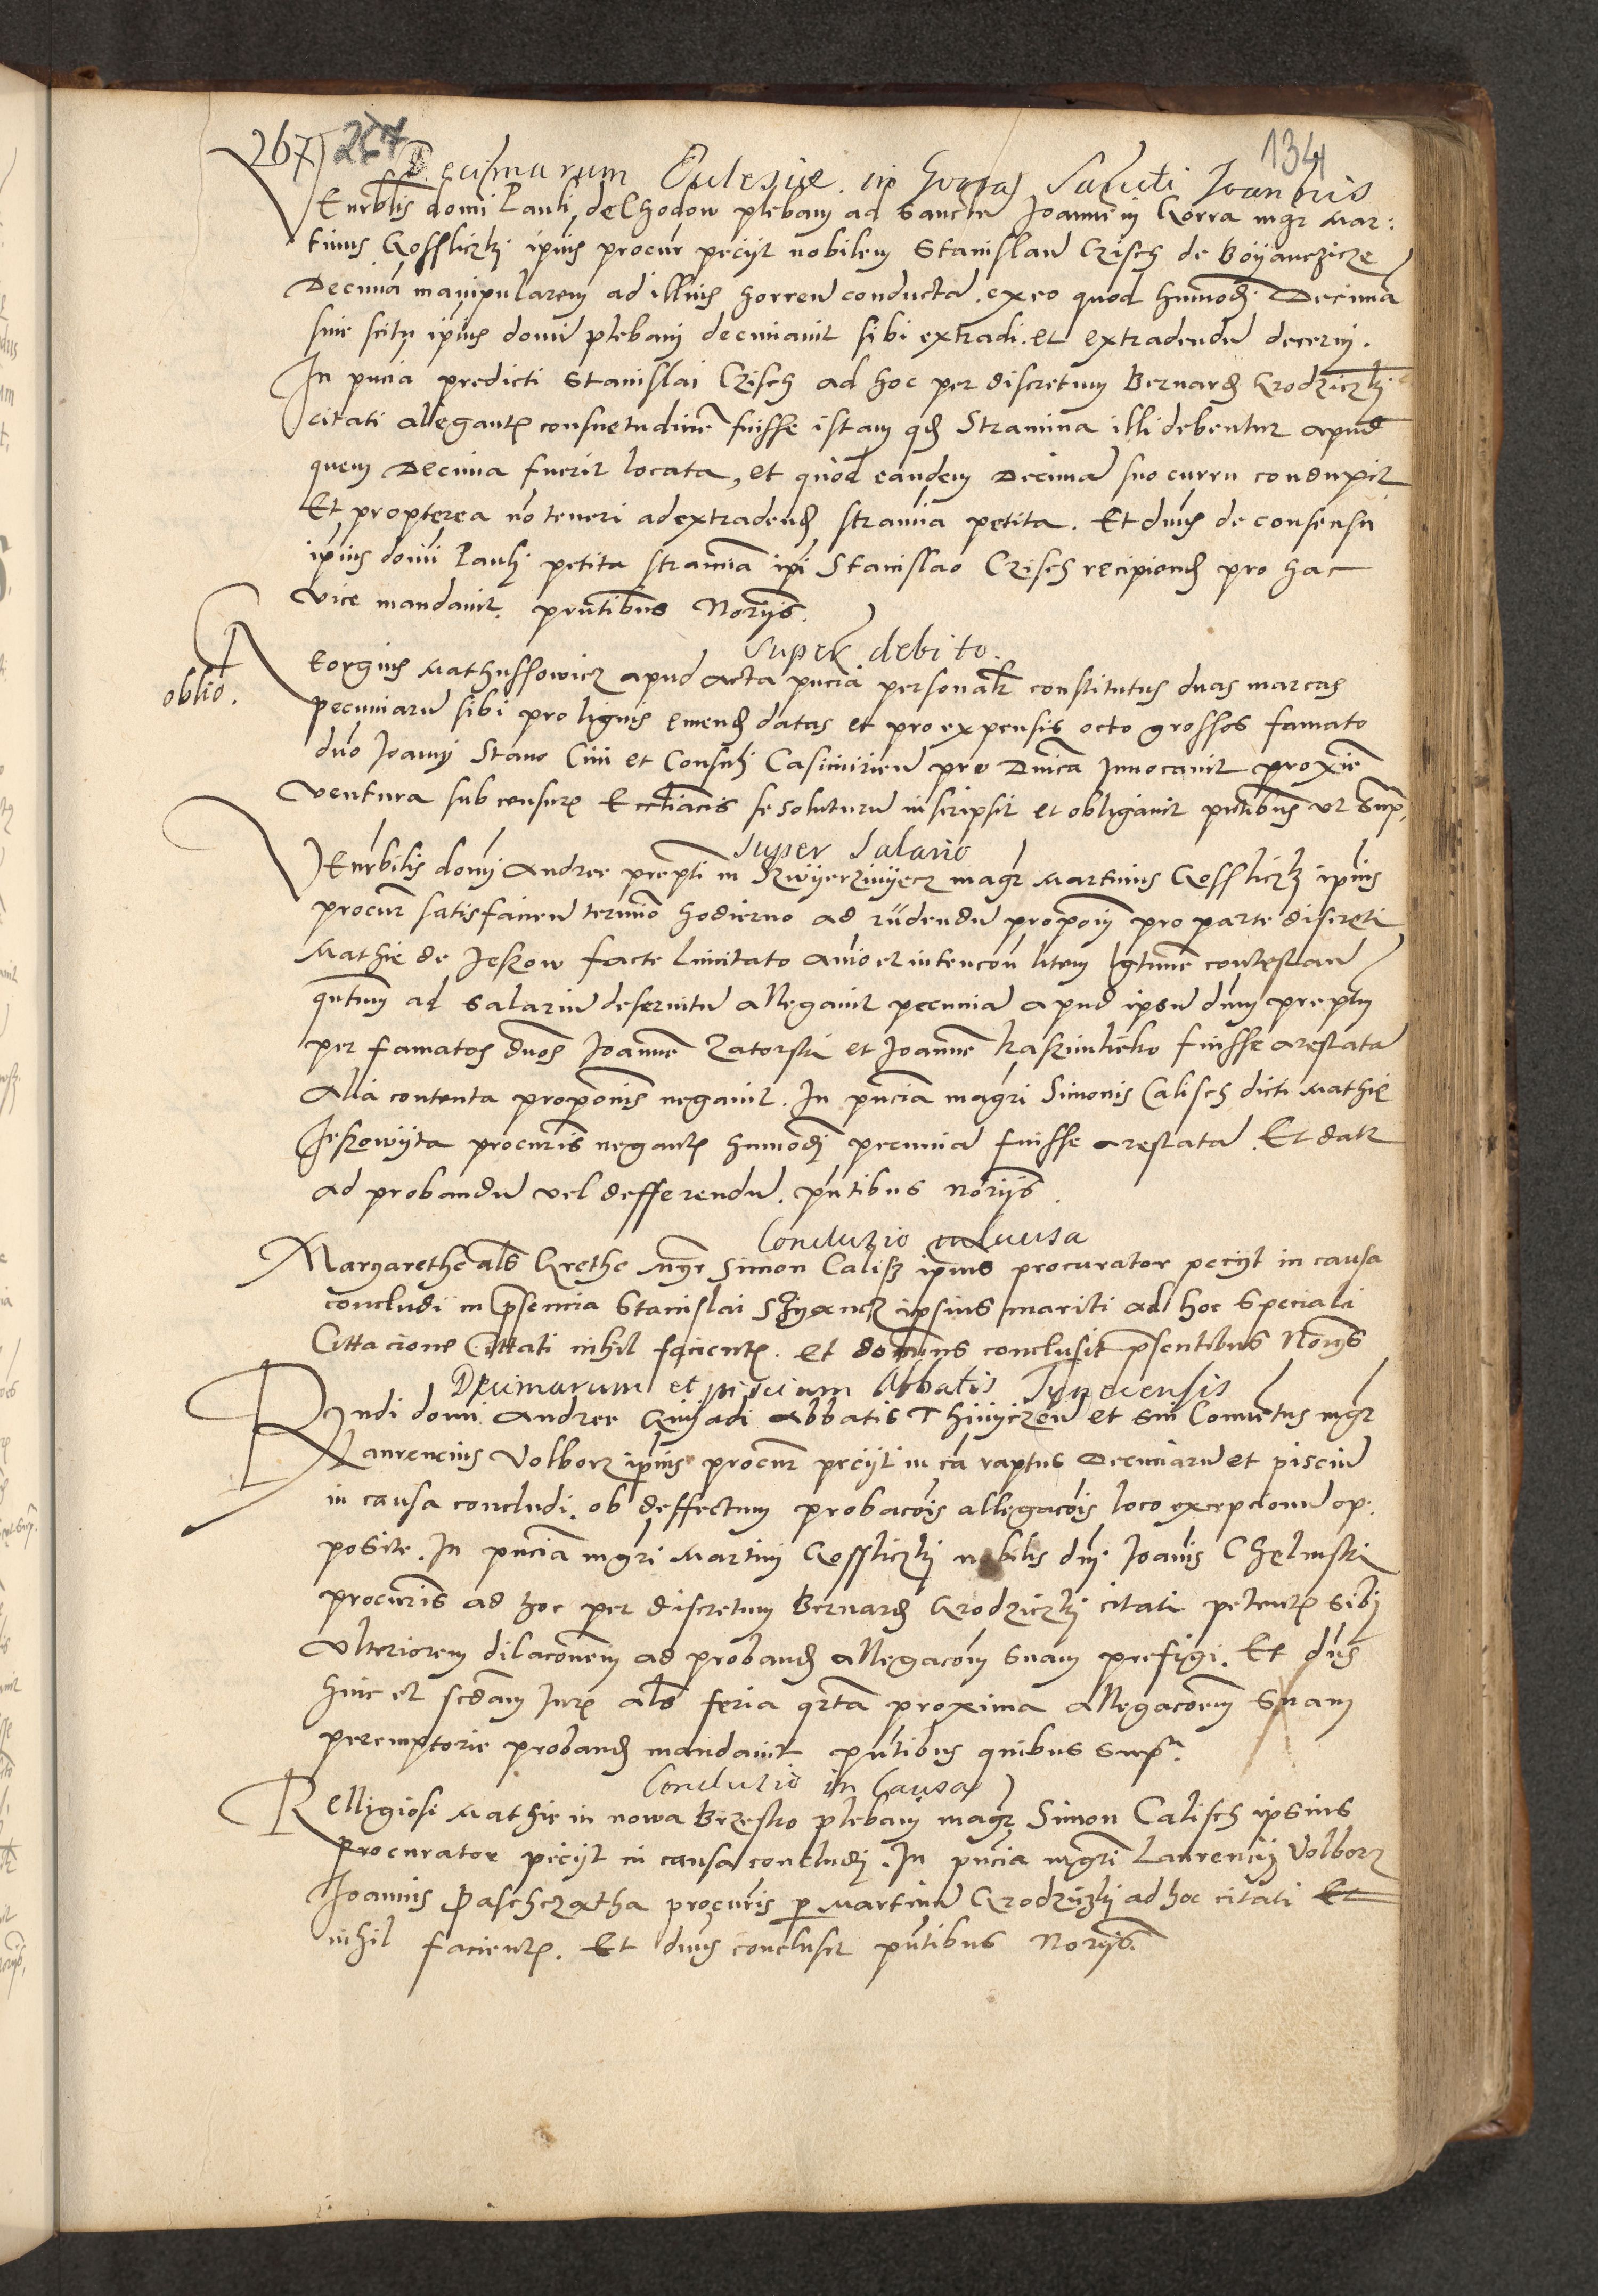 267 267 134
Decimarum Eclesiae in Gorra Sancti Joannis
Venrblis domi Pauli de Chodow plebani ad Sanctu Joannem in Gorra mgr Mar:
tinus Gossliczki ipius procur peciit nobilem Stanislau Czisch de Boyanczicze
Decima manipularem ad illius horreu conducta. ex eo quod hmodi Decima
sine scitu ipius domi plebani decimavit sibi extradi. et extradendu decerni.
In pncia predicti Stanislai Czisch ad hoc per discretum Bernard Grodziczki
citati allegantis consuetudine fuisse istam qd Stramina illi debentur apud
quem Decima fuerit locata, et quod eandem Decima suo curru conduxit
Et propterea no teneri ad extradend stramia petita. Et dnus de consensu
ipius domi Pauli petita stramia ipi Stanislao Czisch recipiend pro hac
vice mandavit. pntibus Noriis.
Super debito.
oblio.
Georgius Mathussowicz apud acta pncia personalr constitutus duas marcas
pecuniaru sibi pro lignis emend datas et pro expensis octo grossos famato
dno Joanni Stano Civi et Consuli Casimirien pro Dnica Invocavit proxie
ventura sub censuris Ecctiacis se soluturu inscripsit et obligavit pntibus ut Sup.
Super Salario
Venrbilis domi Andree prepti in Zwyerzinyecz magr Martinus Gosslicki ipius
procur satisfaciendo termio hodierno ad rndendu proponi pro parte discreti
Mathie de Jeskow facte limitato aio et intencon litem lgtime contestan
qntum ad salariu deservitu allegavit pecunia apud ipsu dnm preptm
per famatos dnos Joanne Zatorski et Joanne Kaszmherko fuisse arestata
Alia contenta proponis negavit. In pncia magri Simonis Calisch dicti Mathie
Jeskowyta procuris negantis hmodi pecunia fuisse arestata. Et datr
ad probandu vel defferendu. pntibus noriis.
Conclusio in causa
Margarethe als Grethe mgr Simon Calisz ipius procurator peciit in causa
concludi in psencia Stanislai ipsius mariti ad hoc speciali
Cittacione Cittati nihil facientis. et dominus conclusit psentibus Noriis
Decimarum et piscium Abbatis Tynecensis
Rndi domi Andree Gnyadi Abbatis Thinyczen et sui Conventus mgr
Laurencius Volborz ipius procur peciit in ca raptus Decimaru et pisciu
in causa concludi. ob deffectum probacois allegacois loco excepcionu op:
posite. In pncia mgri Martini Gosslicki nobilis dni Joanis Chelmski
procuris ad hoc per discretum Bernard Grodziczki citati petentis sibi
ulteriorem dilaconem ad proband allegacom suam prefigi. Et dns
hinc et scdam Juris als feria qrta proxima allegacoem suam
peremptorie proband mandavit pntibus quibus supra.
Conclusio in Causa
Relligiosi Mathie in nowa Brzesko plebani magr Simon Calisch ipsius
procurator peciit in causa concludi. In pncia mgri Laurencii Volborz
Joannis Paschczatha procuris p Martinu Grodziczki ad hoc citati Et
nihil facientis. Et dnus conclusit pntibus Noriis.